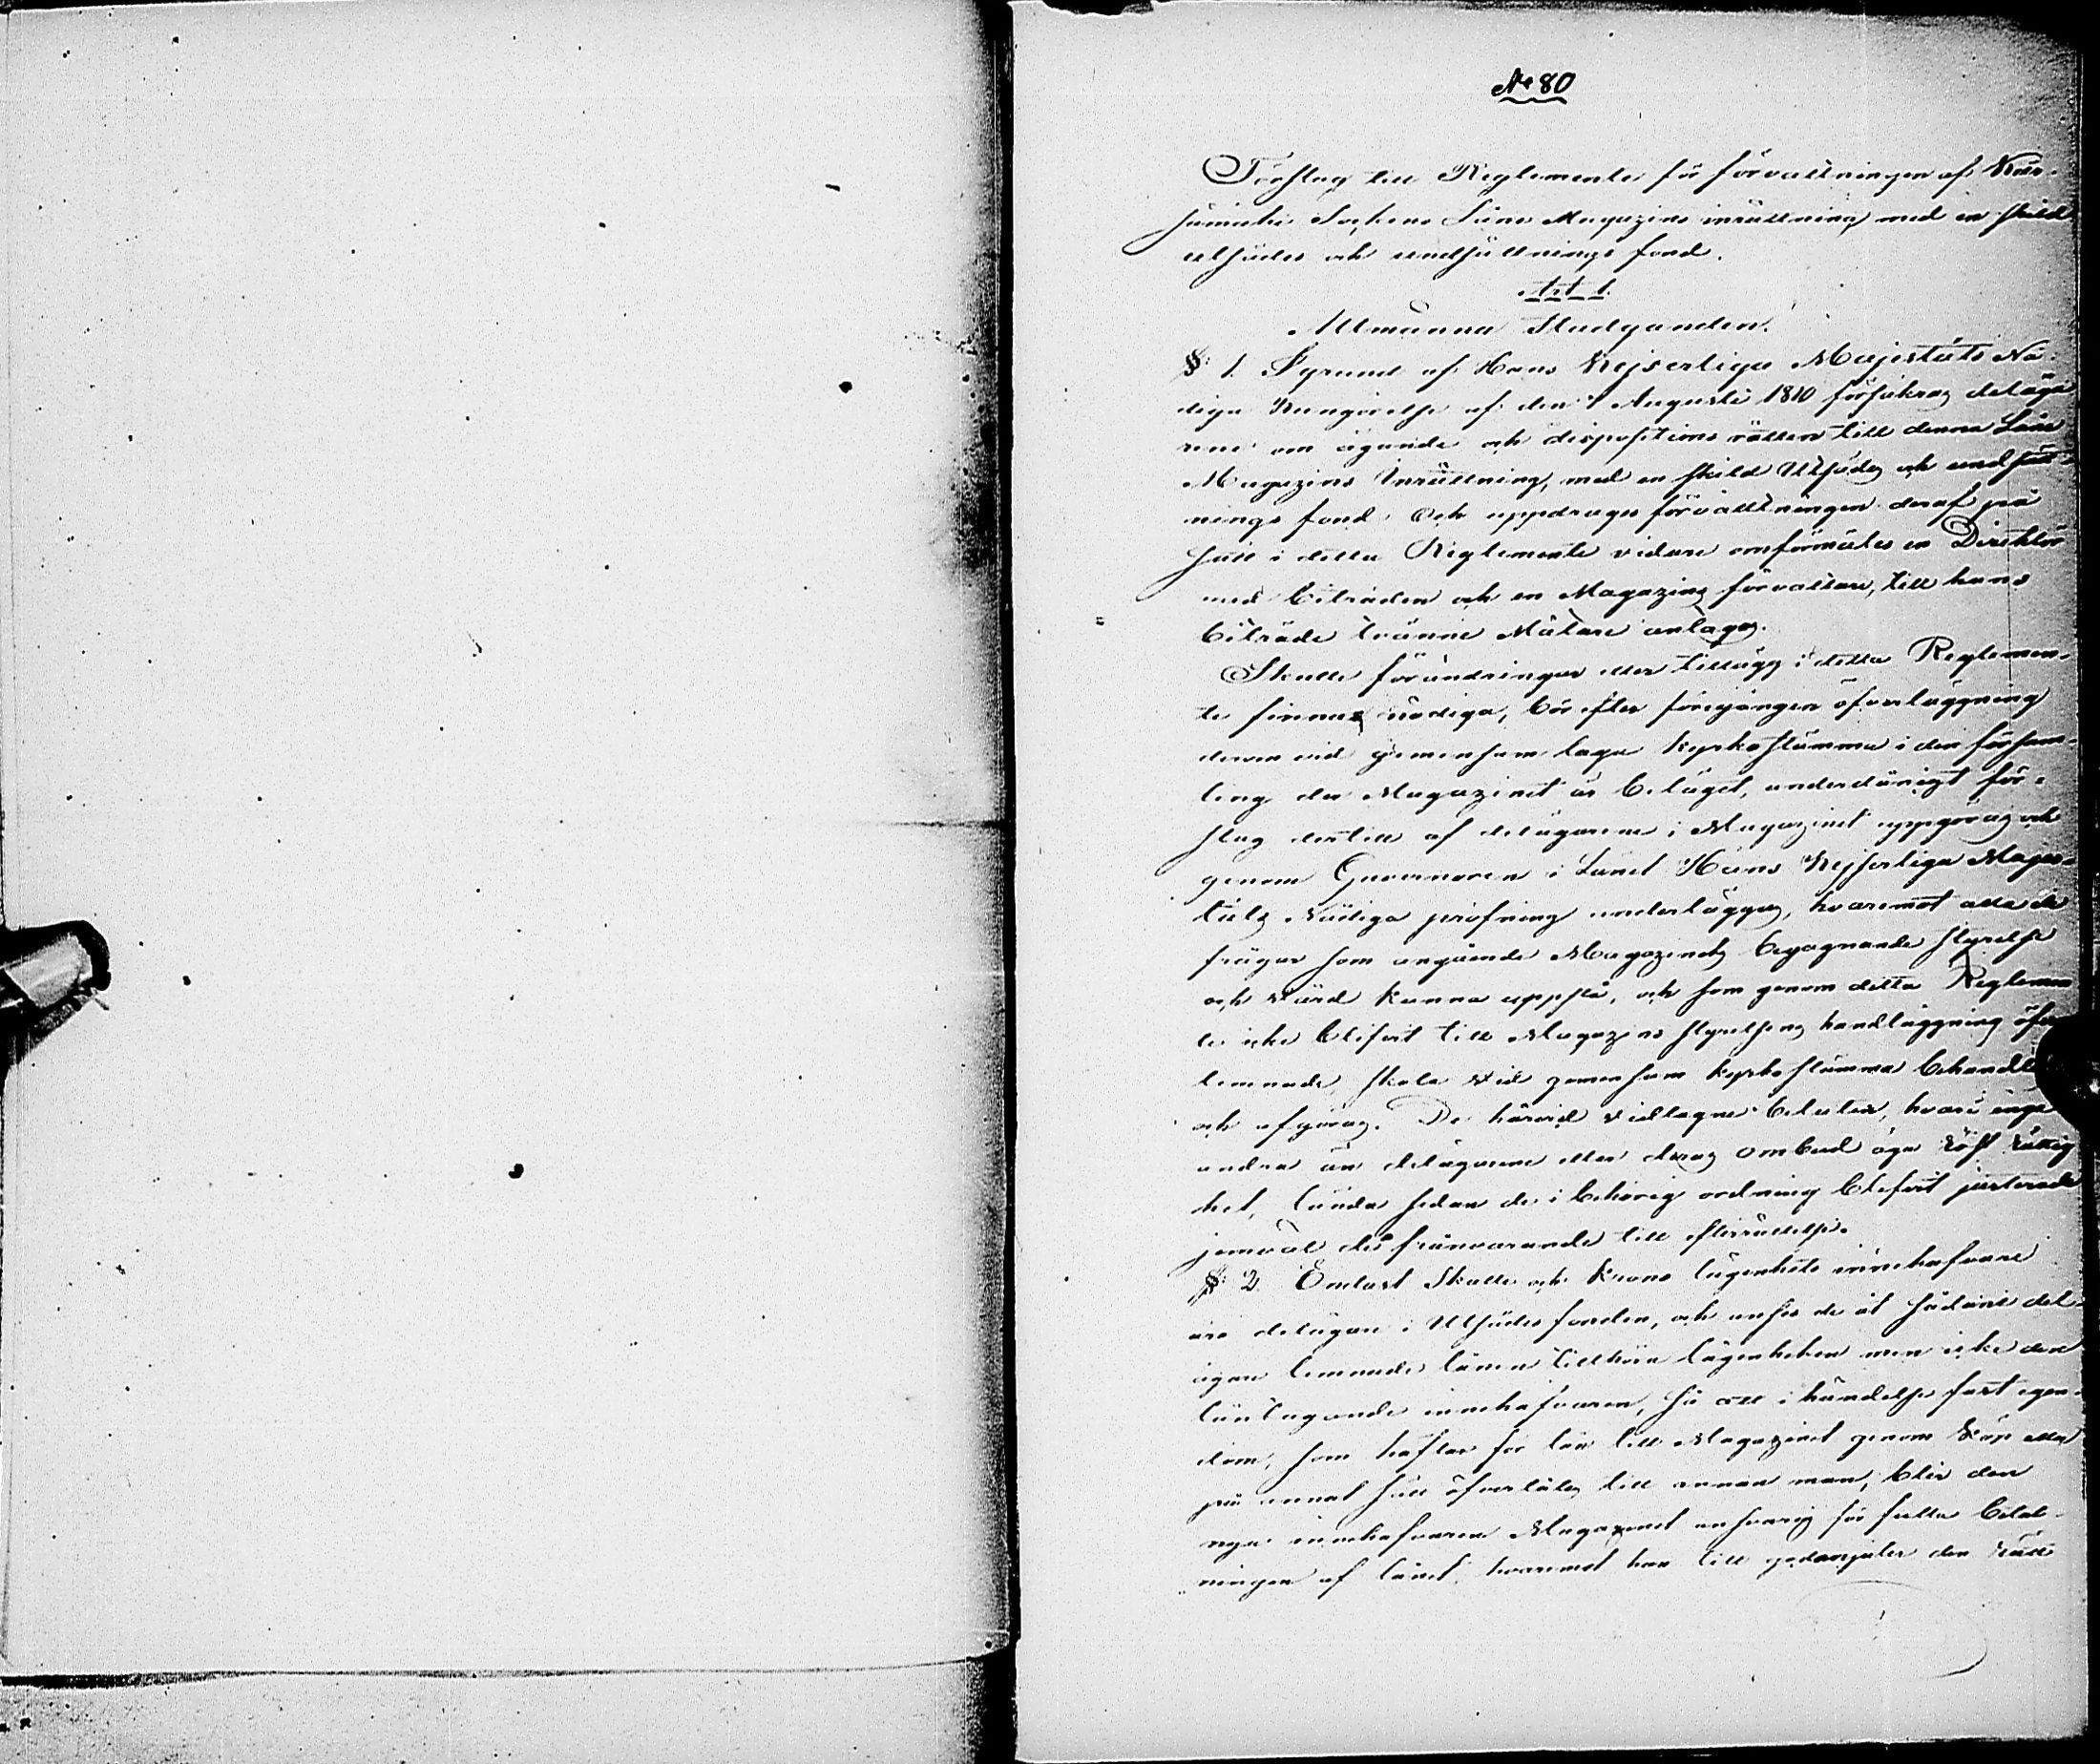 No 80
Förslag till Reglemente för förvaltningen af
Sockens Låne Magazins inrättning med en skild
utsädes och undsättnings fond.
Art 1.
Allmänna Stadganden.
§ 1. På grund af Hans Kejserliga Majestäts Nå-
diga Kungörelse af den 1 Augusti 1810 försäkras deläga
rene om ägande och dispositions rätten till denna Låne
Magazins Inrättning, med en skild Utsädes och undsätt-
nings fond och uppdrages förvaltningen deraf på
sätt i detta Reglemente vidare omförmäles en Direktör
med biträden och en Magazins förvaltare, till hans
biträde tvänne Mätare antages.
Skulle förändringar eller tillägg i detta Reglemen-
te finnas nödiga, bör efter föregången öfverläggning
derom vid gemensam laga kyrkostämma i den försam-
ling der Magazinet är beläget, underdånigt för-
slag dertill af delägarene i Magazinet uppgöras och
genom Guvernören i Länet Hans Kejserliga Majes-
täts Nådiga pröfning underläggas, hvaremot alla de
frågor som angående Magazinets begagnande styrelse
och vård kunna uppstå, och som genom detta Reglemen
te icke blifvit till Magazins styrelsens handläggning öfver
lemnade, skola vid gemensam kyrkostämma behandlas
och afgöras. De härvid vidtagne beslutes, hvari inga
andra än delägarene eller deras ombud äga röst rättig
het, lända sedan de i behörig ordning blifvit justerade
jemväl de frånvarande till efterrättelse.
§ 2. Endast Skatte och Krono lägenhets innehafvare
äro delägare i Utsädes fonden, och anses de åt sådane del-
ägare lemnade lånen tillhöra lägenheten men icke den
låntagande innehafvaren, så att i händelse fast egen-
dom, som häftar för lån till Magazinet genom köp eller
på annat sätt öfverlåtes till annan man, blir den
nya innehafvaren Magazinet ansvarig för fulla betal-
ningen af lånet, hvaremot han till godonjuter den rätt